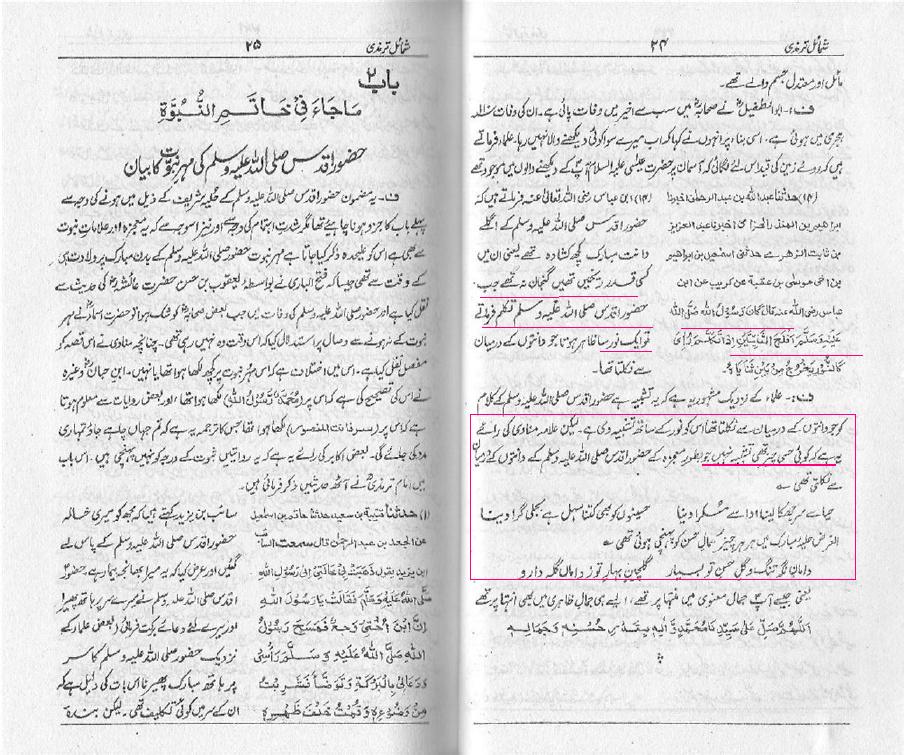 شمائل ترمذی ۲۴
مائل اور معتدل جسم والے تھے۔
ف: ابو الطفیلؓ نے صحابہؓ میں سب سے اخیر میں وفات پائی ہے۔ ان کی وفات سنہ ۱۱۰
ہجری میں ہوئی ہے۔ اسی بناء پر انہوں نے کہا کہ اب میرے سوا کوئی دیکھنے والا نہیں رہا۔ علماء فرماتے
ہیں کہ روئے زمین کی قید اس لئے لگائی کہ آسمان پر حضرت عیسیٰ علیہ السلام آپؐ کے دیکھنے والوں میں موجود تھے
(۱۴) حدثنا عبد الله بن عبد الرحمن اخبرنا
ابراهيم بن المنذر الحزامي اخبرنا عبد العزيز
بن ثابت الزهري حدثني اسمعيل بن ابراهيم
بن اخي موسى بن عقبة عن كريب عن ابن
عباس رضي الله عنه قال كان رَسُوْلُ اللهِ صَلَّى اللهُ
عَلَيْهِ وَسَلَّمَ اَفْلَجَ الثَّنِيَّتَيْنِ اِذَا تَكَلَّمَ رُاِيَ
كَالنُّوْرِ يَخْرُجُ مِنْ بَيْنِ ثَنَايَاهُ
(۱۴) ابن عباس رضی اللہ تعالیٰ عنہ فرماتے ہیں کہ
حضور اقدس صلی اللہ علیہ وسلم کے اگلے
دانت مبارک کچھ کشادہ تھے یعنی ان میں
کسی قدر ریخیں تھیں گنجان نہ تھے جب
حضور اقدس صلی اللہ علیہ وسلم تکلم فرماتے
تو ایک نور سا ظاہر ہوتا جو دانتوں کے درمیان
سے نکلتا تھا۔
ف: علماء کے نزدیک مشہور یہ ہے کہ یہ تشبیہ ہے حضور اقدس صلی اللہ علیہ وسلم کے کلام
کو جو دانتوں کے درمیان سے نکلتا تھا اس کو نور کے ساتھ تشبیہ دی ہے۔ لیکن علامہ مناوی کی رائے
یہ ہے کہ کوئی حسی چیز تھی تشبیہ نہیں جو بطور معجزہ کے حضور اقدس صلی اللہ علیہ وسلم کے دانتوں کے درمیان
سے نکلتی تھی ؎
حیا سے سر جھکا لینا ادا سے مسکرا دینا حسینوں کو بھی کتنا سہل ہے بجلی گرا دینا
الغرض حلیہ مبارک میں ہر ہر چیز کمال حسن کو پہنچی ہوئی تھی ؎
دامان نگہ تنگ و گل حسن تو بسیار گلچین بہار تو ز داماں گلہ دارد
یعنی جیسے آپؐ جمال معنوی میں منتہا پر تھے ایسے ہی جمال ظاہری میں بھی انتہا پر تھے
اَللّٰهُمَّ صَلِّ عَلٰى سَيِّدِنَا مُحَمَّدٍ وَّاٰلِهٖ بِقَدْرِ حُسْنِهٖ وَجَمَالِهٖ
شمائل ترمذی ۲۵
باب ۲
مَاجَاءَ فِيْ خَاتَمِ النُّبُوَّةِ
حضور اقدس صلی اللہ علیہ وسلم کی مہر نبوت کا بیان
ف۔ یہ مضمون حضور اقدس صلی اللہ علیہ وسلم کے حلیہ شریف کے ذیل میں ہونے کی وجہ سے
پہلے باب کا جزو ہونا چاہیے تھا مگر شدت اہتمام کی وجہ سے اور نیز اس وجہ سے کہ یہ معجزہ اور علامات نبوت
سے بھی ہے اس کو علیحدہ ذکر کیا جاتا ہے مہر نبوت حضور صلی اللہ علیہ وسلم کے بدن مبارک پر ولادت ہی
کے وقت سے تھی جیسا کہ فتح الباری نے بواسطہ یعقوب بن حسن حضرت عائشہؓ کی حدیث سے
نقل کیا ہے اور حضور صلی اللہ علیہ وسلم کی وفات میں جب بعض صحابہؓ کو شک ہوا تو حضرت اسماءؓ نے مہر
نبوت کے نہ ہونے سے وصال پر استدلال کیا کہ اس وقت وہ نہیں رہی تھی۔ چنانچہ مناوی نے اس قصہ کو
مفصل نقل کیا ہے۔ اس میں اختلاف ہے کہ اس مہر نبوت پر کچھ لکھا ہوا تھا یا نہیں۔ ابن حبان وغیرہ
نے اس کی تصحیح کی ہے کہ اس پر (مُحَمَّدٌ رَّسُوْلُ اللهِ) لکھا ہوا تھا اور بعض روایات سے معلوم ہوتا
ہے کہ اس پر (سر فانت المنصور) لکھا ہوا تھا جس کا ترجمہ یہ ہے کہ تم جہاں چاہے جاؤ تمہاری
مدد کی جائے گی۔ بعض اکابر کی رائے یہ ہے کہ یہ روایتیں ثبوت کے درجہ کو نہیں پہنچتی ہیں۔ اس باب
میں امام ترمذیؒ نے آٹھ حدیثیں ذکر فرمائی ہیں۔
(۱) حدثنا قتيبة بن سعيد حدثنا حاتم بن اسمعيل
عن الجعد بن عبد الرحمن قال سمعت السائب
ابن يزيد يقول ذَهَبَتْ بِيْ خَالَتِيْ اِلٰى رَسُوْلِ اللهِ
صَلَّى اللهُ عَلَيْهِ وَسَلَّمَ فَقَالَتْ يَا رَسُوْلَ اللهِ
اِنَّ ابْنَ اُخْتِيْ وَجِعٌ فَمَسَحَ رَسُوْلُ
اللهِ صَلَّى اللهُ عَلَيْهِ وَسَلَّمَ رَاْسِيْ
وَدَعَا لِيْ بِالْبَرَكَةِ وَتَوَضَّأَ فَشَرِبْتُ
مِنْ وَضُوْءِهٖ وَقُمْتُ خَلْفَ ظَهْرِهٖ
سائب بن یزید کہتے ہیں کہ مجھ کو میری خالہ
حضور اقدس صلی اللہ علیہ وسلم کے پاس لے
گئیں اور عرض کیا کہ یہ میرا بھانجہ بیمار ہے حضور
اقدس صلی اللہ علیہ وسلم نے میرے سر پر ہاتھ پھیرا
اور میرے لئے دعائے برکت فرمائی (بعض علماء کے
نزدیک حضور صلی اللہ علیہ وسلم کا سر
پر ہاتھ مبارک پھیرنا اس بات کی دلیل ہے کہ
ان کے سر میں کوئی تکلیف تھی۔ لیکن بندہ